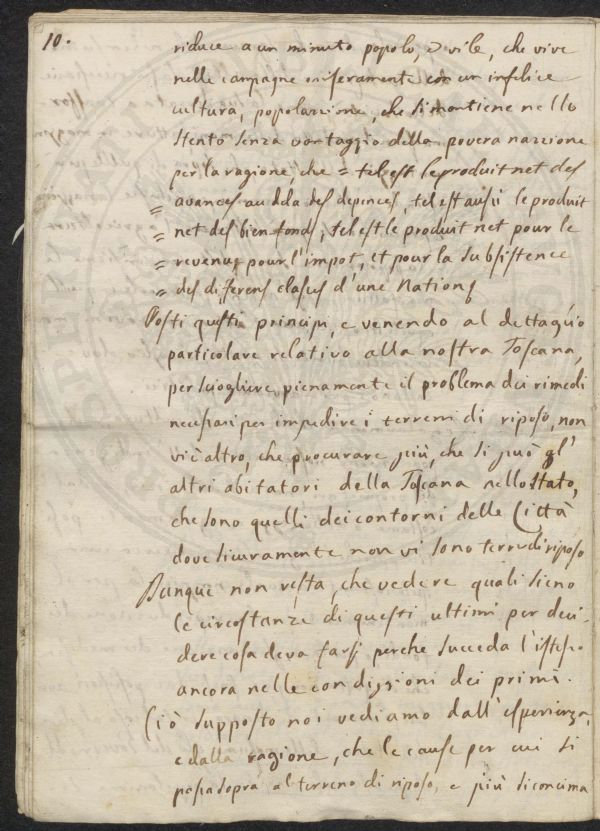 10.
riduce a un minuto popolo, e vile, che vive
nelle campagne miseramente con un infelice
cultura, popolazione, che si mantiene nello
stento senza vantaggio della povera nazzione
per la ragione, che = tel est le produit net des
= avances au dela des depences, tel est aussi le produit
= net des bien fonds, tel est le produit net pour le
= revenu, pour l'impot, et pour la subsistence
= des differens classes d'une Nations
Posti questi principj, e venendo al dettaglio
particolare relativo alla nostra Toscana,
per sciogliere pienamente il problema dei rimedi
necessari per impedire i terreni di riposo, non
vi è altro, che procurare più, che si può gl'
altri abitatori della Toscana nello stato,
che sono quelli dei contorni delle Città
dove sicuramente non vi sono terre di riposo
Dunque non resta, che vedere quali sieno
le circostanze di questi ultimi per deci-
dere cosa deva farsi perche succeda l'istesso
ancora nelle condizzioni dei primi.
Ciò supposto noi vediamo dall'esperienza,
e dalla ragione, che le cause per cui si
passa sopra al terreno di riposo, e più si concima